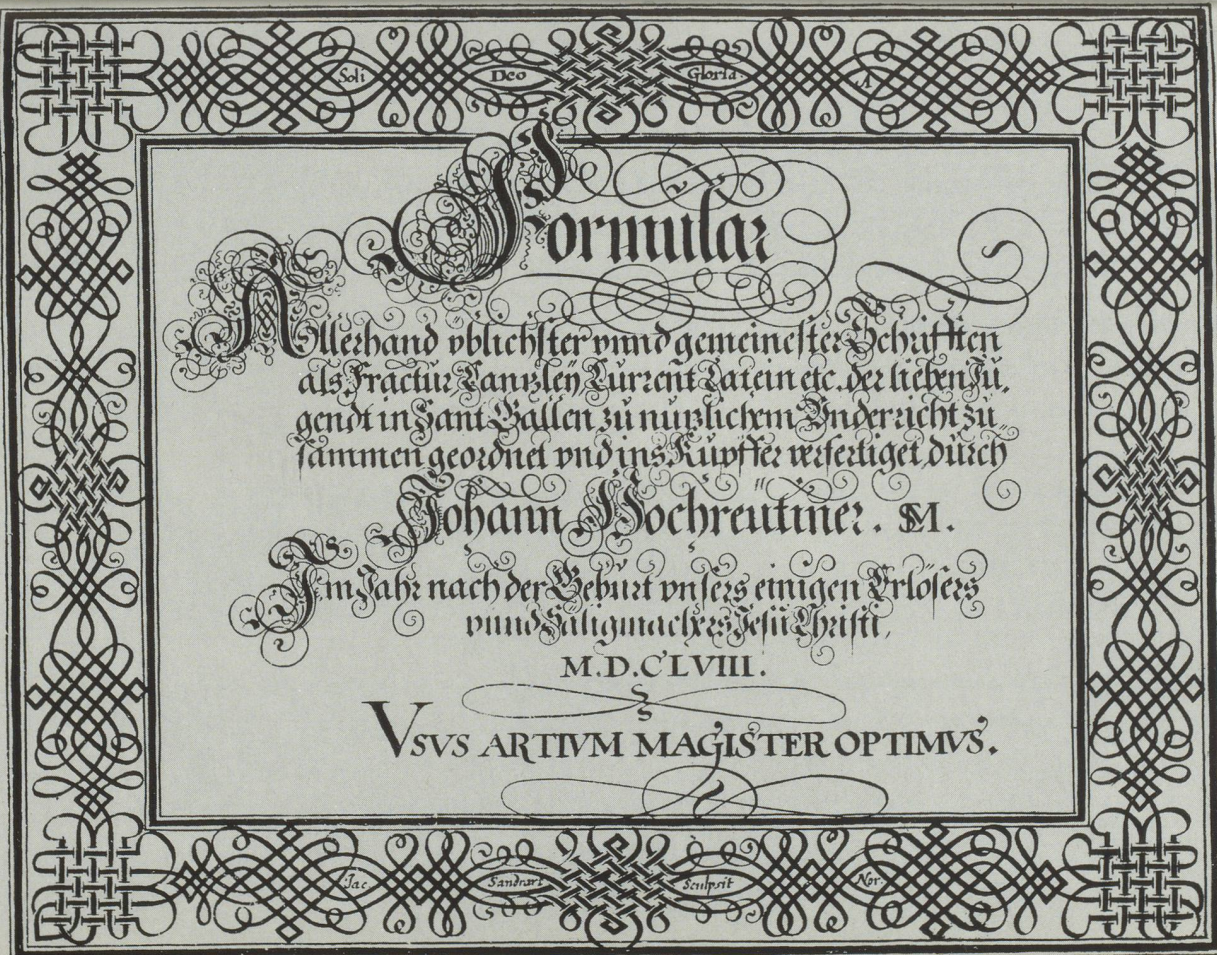 Soli Deo Gloria. A
Formular
Allerhand vblichster vnnd gemeinester Schrifften
als Fractur Cantzley Current Latein etc. der lieben Ju„
gendt in Sant Gallen zu nutzlichem Vnderricht zu„
sammen geordnet vnd ins Kupffer verfertiget durch
Johann Hochreutiner. SM.
Im Jahr nach der Geburt vnsers einigen Erlösers
vnnd Säligmachers Jesu Christi,
M.D.CLVIII.
VSVS ARTIVM MAGISTER OPTIMVS.
Jac. Sandrart Sculpsit Nor.